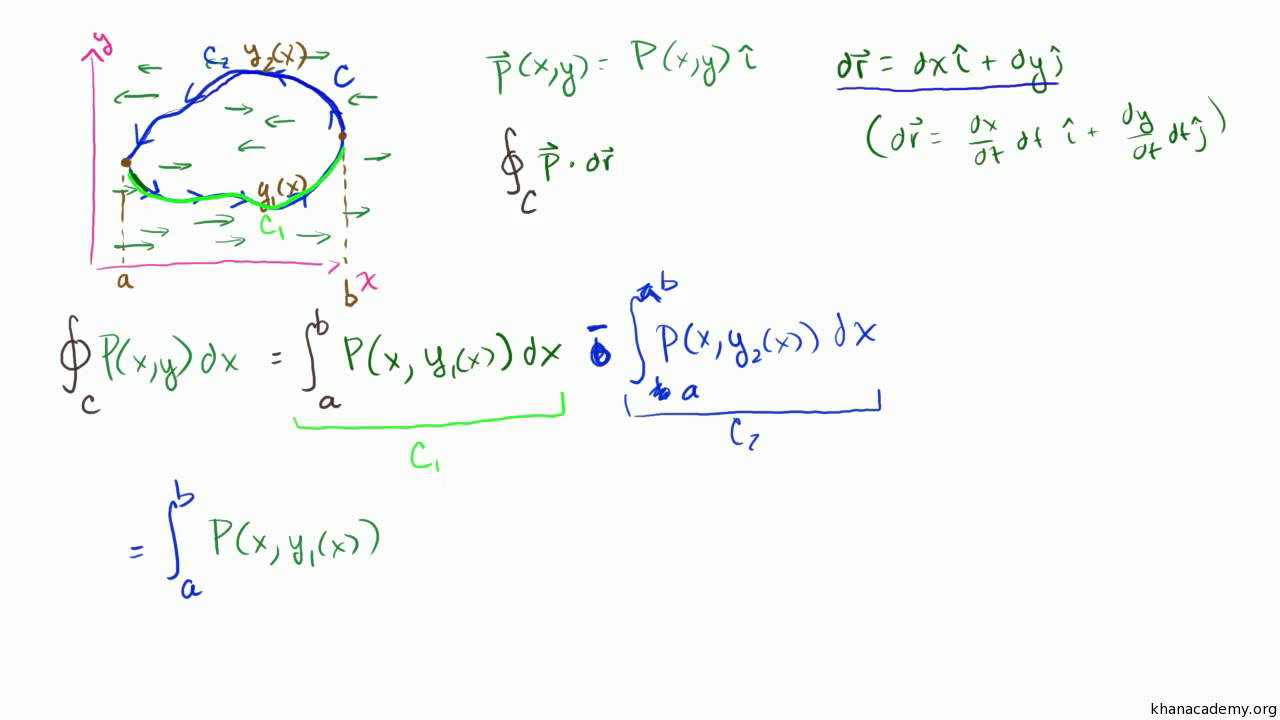 y
C₂ y₂(x)
C
y₁(x)
C₁
a
b x
p⃗(x,y) = P(x,y) î
dr⃗ = dx î + dy ĵ
(dr⃗ = dx/dt dt î + dy/dt dt ĵ)
∮_C p⃗ · dr⃗
∮_C P(x,y) dx = ∫_a^b P(x, y₁(x)) dx - ∫_a^b P(x, y₂(x)) dx
C₁
C₂
= ∫_a^b P(x, y₁(x))
khanacademy.org